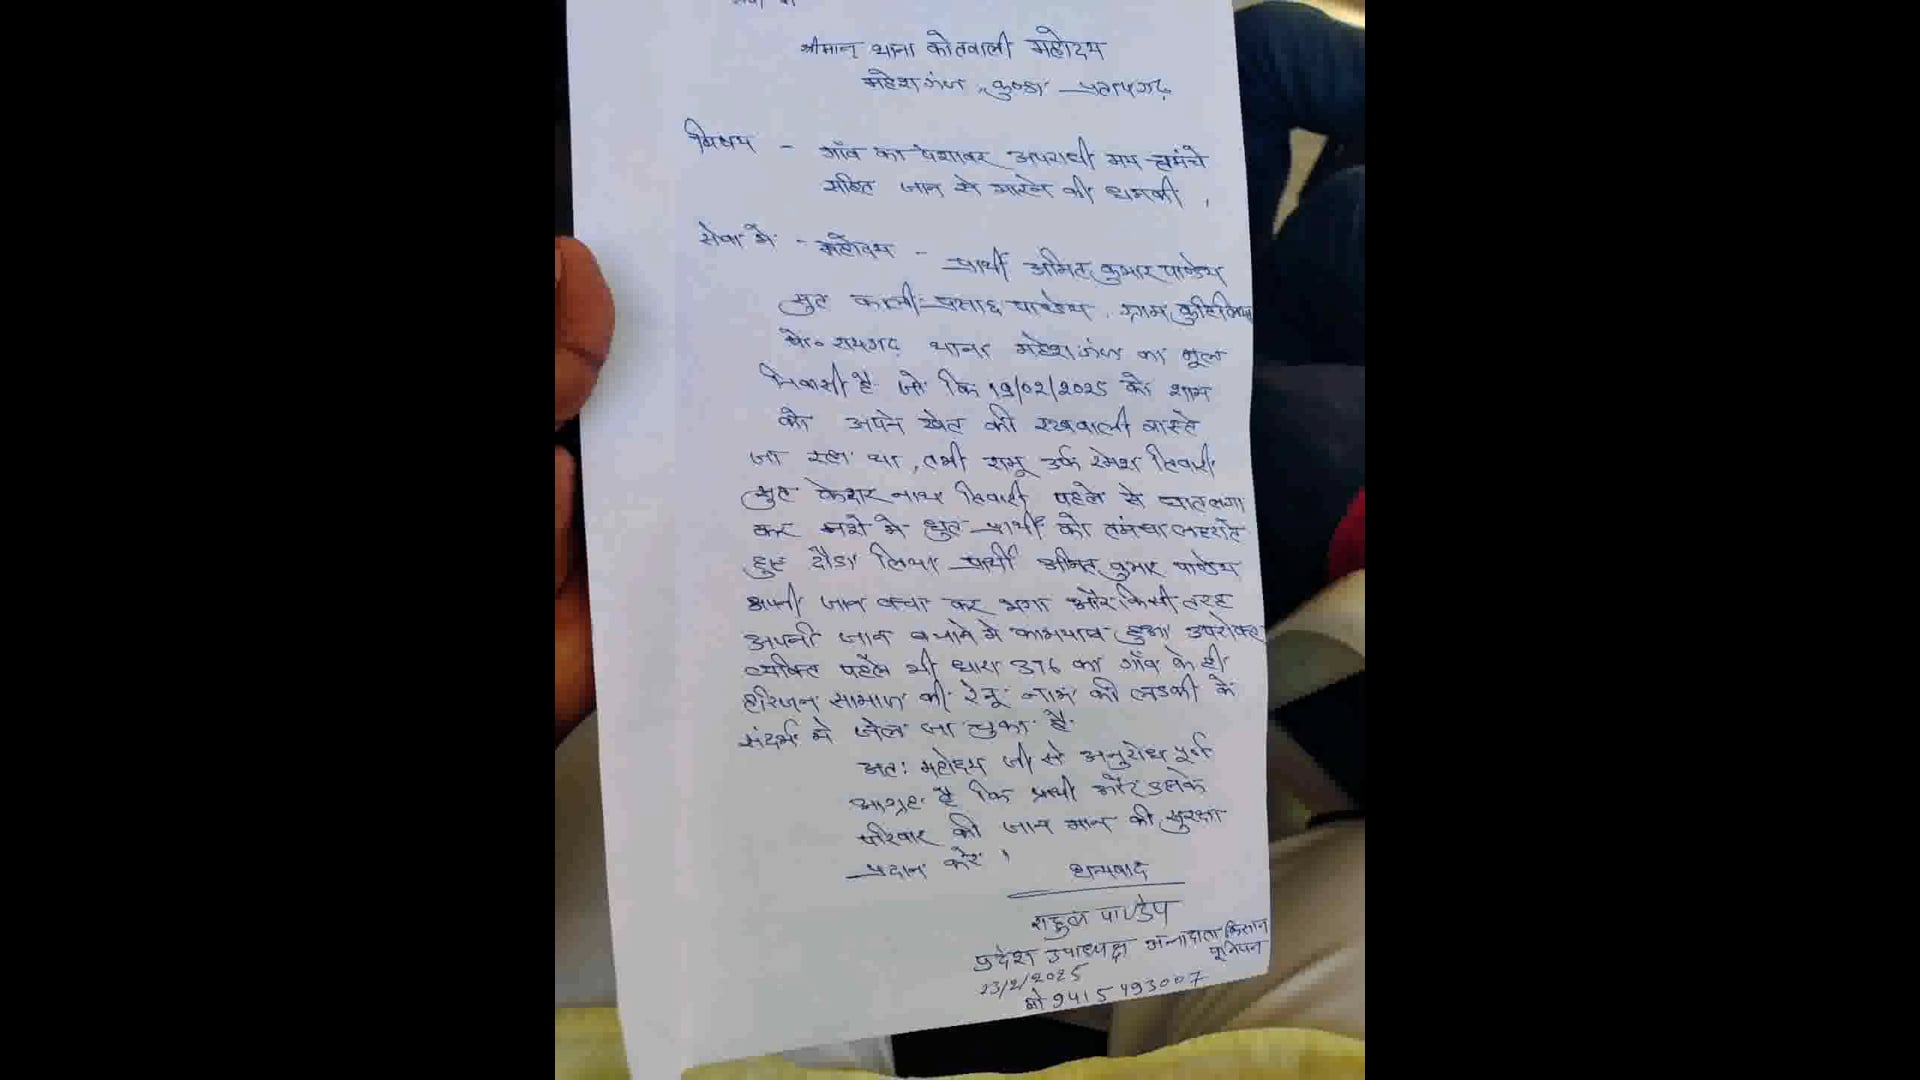 सेवा में
श्रीमान् थाना कोतवाली महोदय
महेशगंज, कुण्डा प्रतापगढ़
विषय - गाँव का पेशावर अपराधी मय तमंचे
सहित जान से मारने की धमकी,
सेवा में - महोदय - प्रार्थी अमित कुमार पाण्डेय
सुत काली प्रसाद पाण्डेय, ग्राम
पो० रायगढ़ थाना महेशगंज का मूल
निवासी है जो कि 19/02/2025 को शाम
को अपने खेत की रखवाली वास्ते
जा रहा था, तभी रामू उर्फ रमेश तिवारी
सुत केदार नाथ तिवारी पहले से घात लगा
कर नशे मे धुत प्रार्थी को तमंचा लहराते
हुए दौड़ा लिया प्रार्थी अमित कुमार पाण्डेय
अपनी जान बचा कर भगा और किसी तरह
अपनी जान बचाने मे कामयाब हुआ उपरोक्त
व्यक्ति पहले भी धारा 376 का गाँव के ही
हरिजन समाज की रेनू नाम की लडकी के
संदर्भ मे जेल जा चुका है
अतः महोदय जी से अनुरोध पूर्ण
आग्रह है कि प्रार्थी और उसके
परिवार की जान माल की सुरक्षा
प्रदान करें।
धन्यवाद
राहुल पाण्डेय
प्रदेश उपाध्यक्ष अन्नदाता किसान
यूनियन
23/2/2025
मो 9415493007